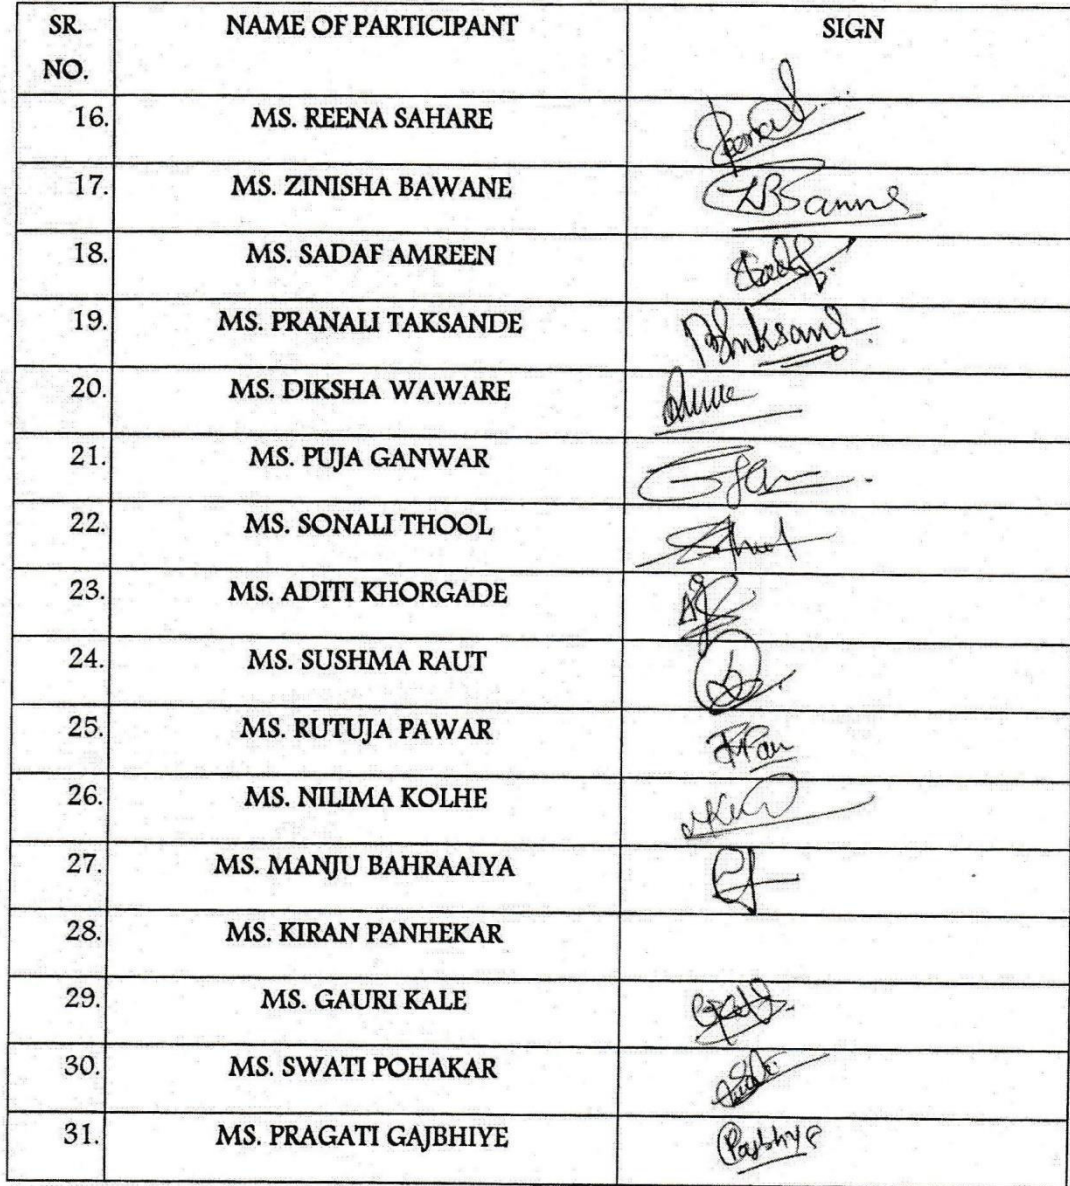 SR. NO. NAME OF PARTICIPANT SIGN
16. MS. REENA SAHARE
17. MS. ZINISHA BAWANE
18. MS. SADAF AMREEN
19. MS. PRANALI TAKSANDE
20. MS. DIKSHA WAWARE
21. MS. PUJA GANWAR
22. MS. SONALI THOOL
23. MS. ADITI KHORGADE
24. MS. SUSHMA RAUT
25. MS. RUTUJA PAWAR
26. MS. NILIMA KOLHE
27. MS. MANJU BAHRAAIYA
28. MS. KIRAN PANHEKAR
29. MS. GAURI KALE
30. MS. SWATI POHAKAR
31. MS. PRAGATI GAJBHIYE